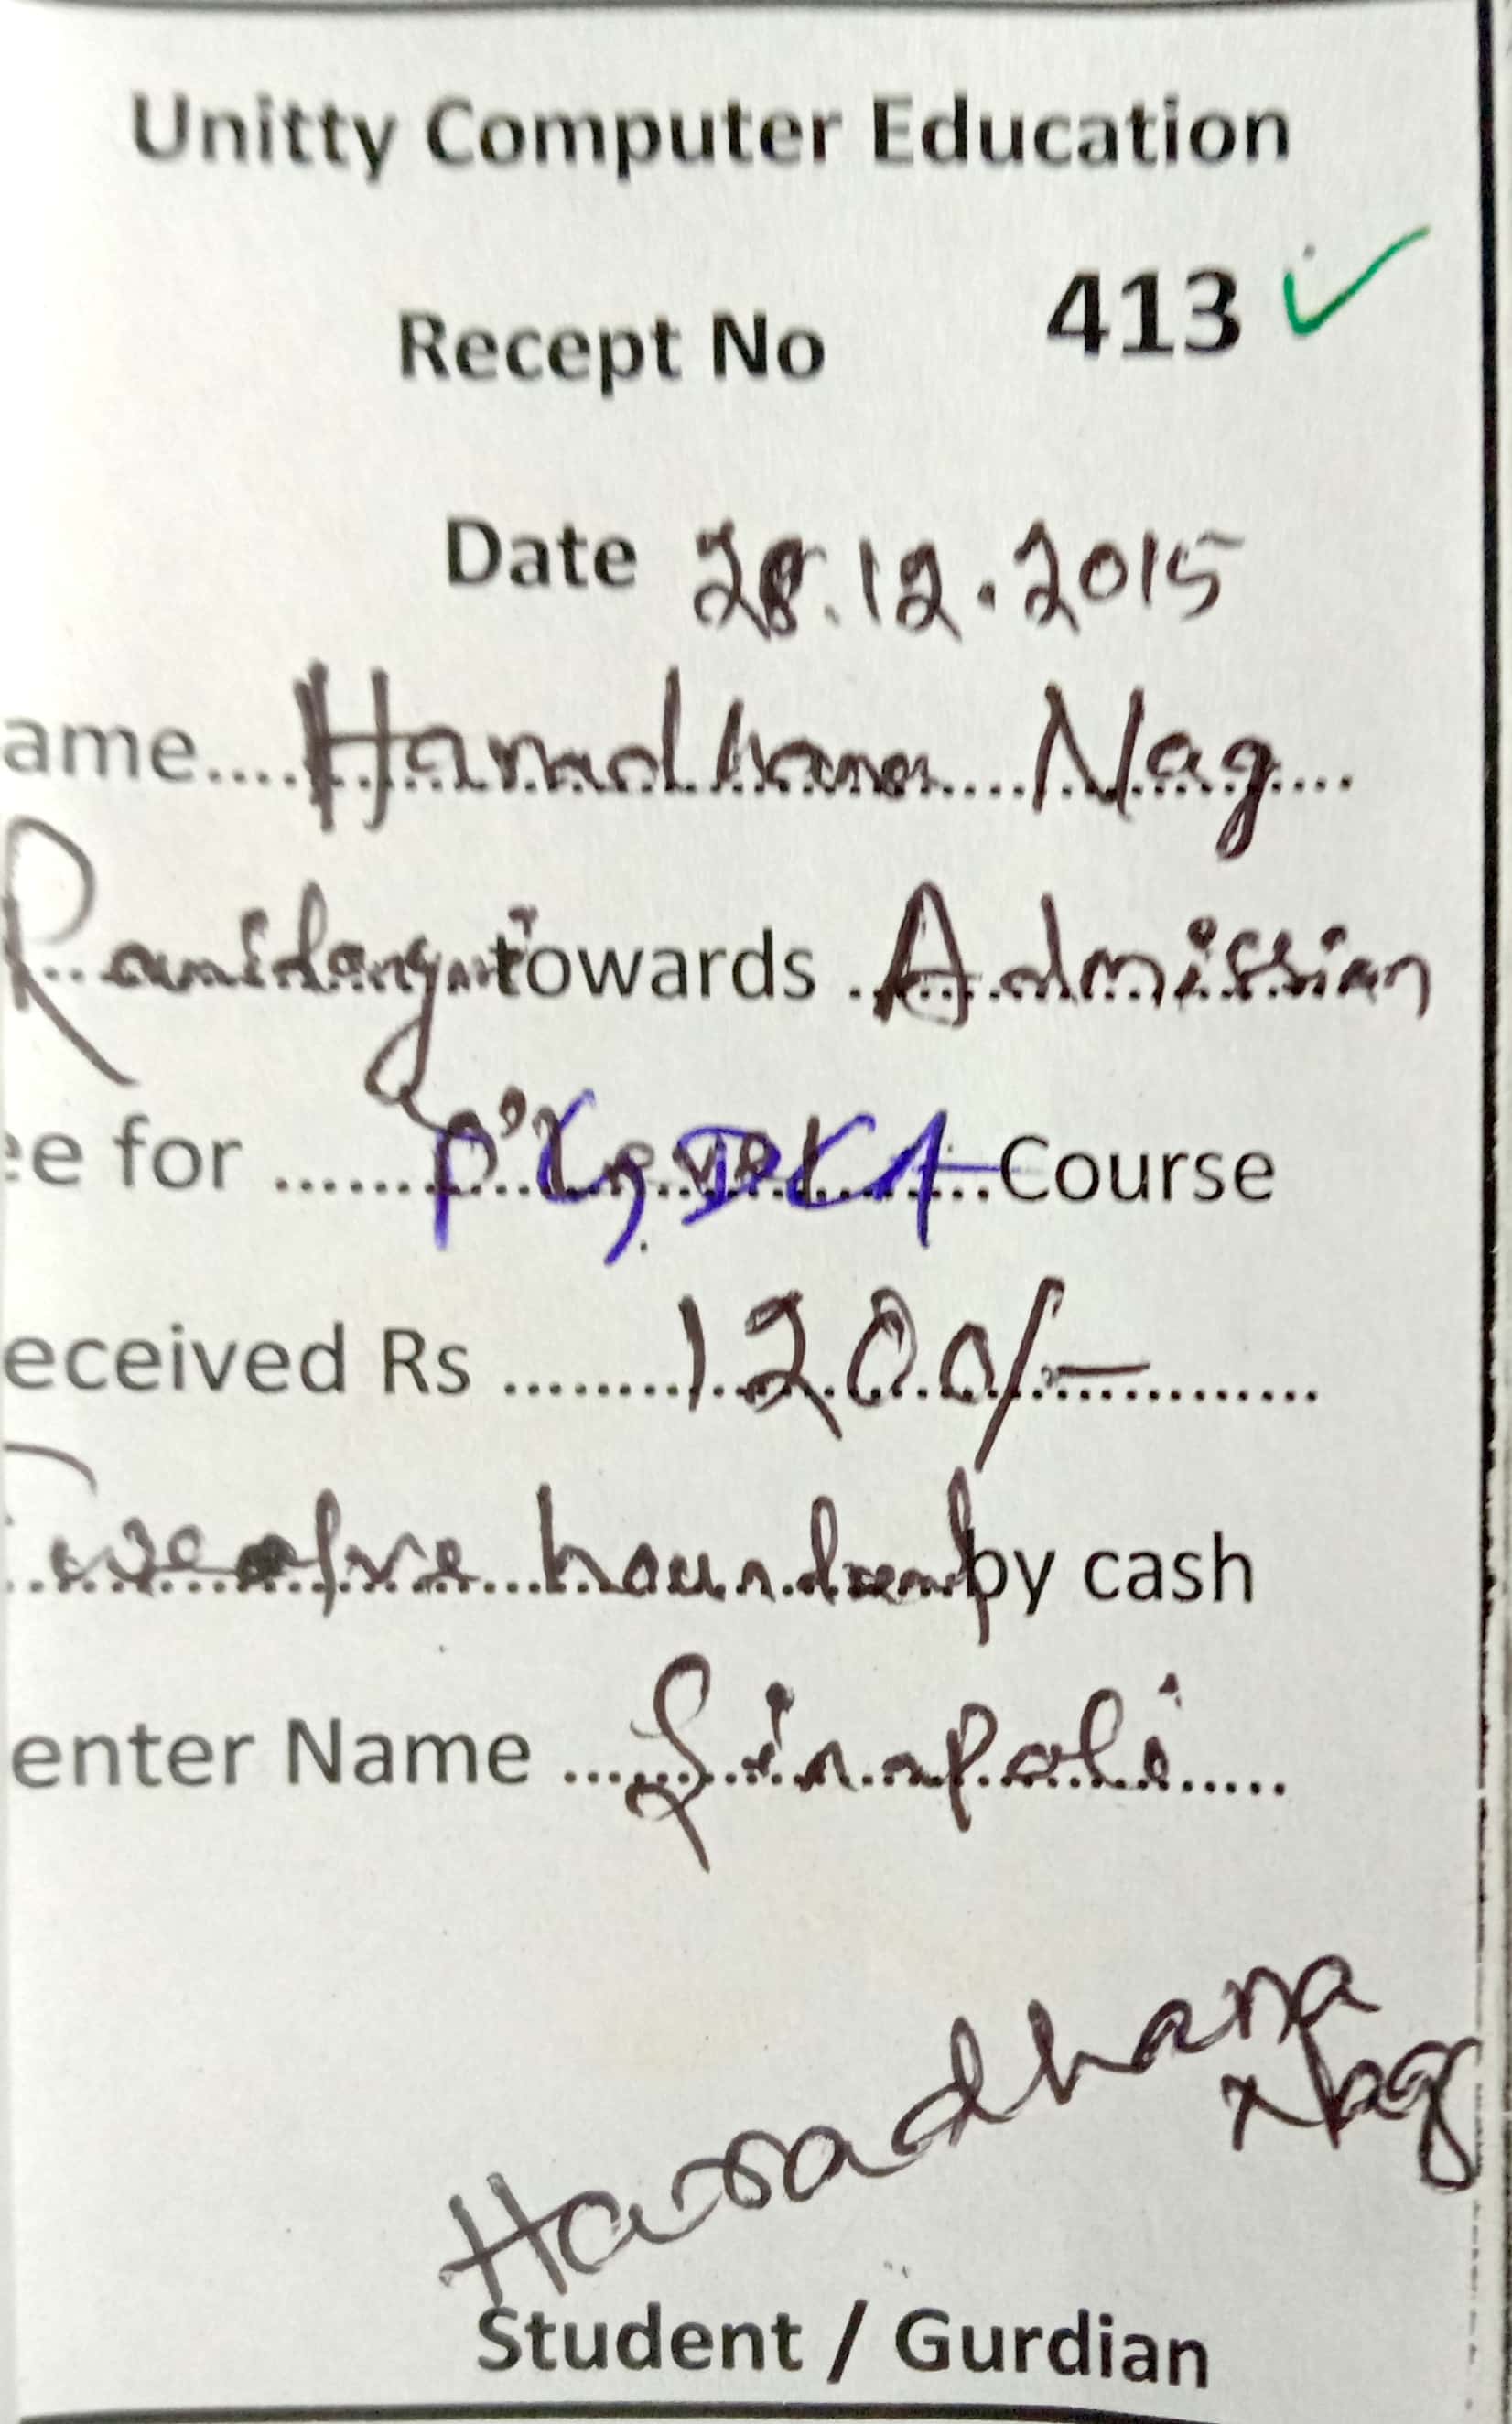 Unitty Computer Education
Recept No 413
Date 28.12.2015
ame.... Haradhana Nag
towards Admission
ee for ...... PGDCA Course
eceived Rs ........ 1200/-
hundred by cash
enter Name ..... Sinapali
Haradhana
Nag
Student / Gurdian